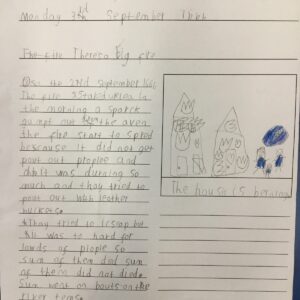 Monday 3rd September 1666
The fire Theres a big fire
On the 2nd September 1666
The fire started in
the morning a sparck
jumpt out from the aven
the fire start to spred
because it did not get
pout out people and
didn't was burning so
much and thay tried to
pout out with leather
buckets.
Thay tried to
but
it was to hard for
lowds of people so
sum of them did sum
of them did not died.
Sum went on bouts on the
river tems.
The house is berning